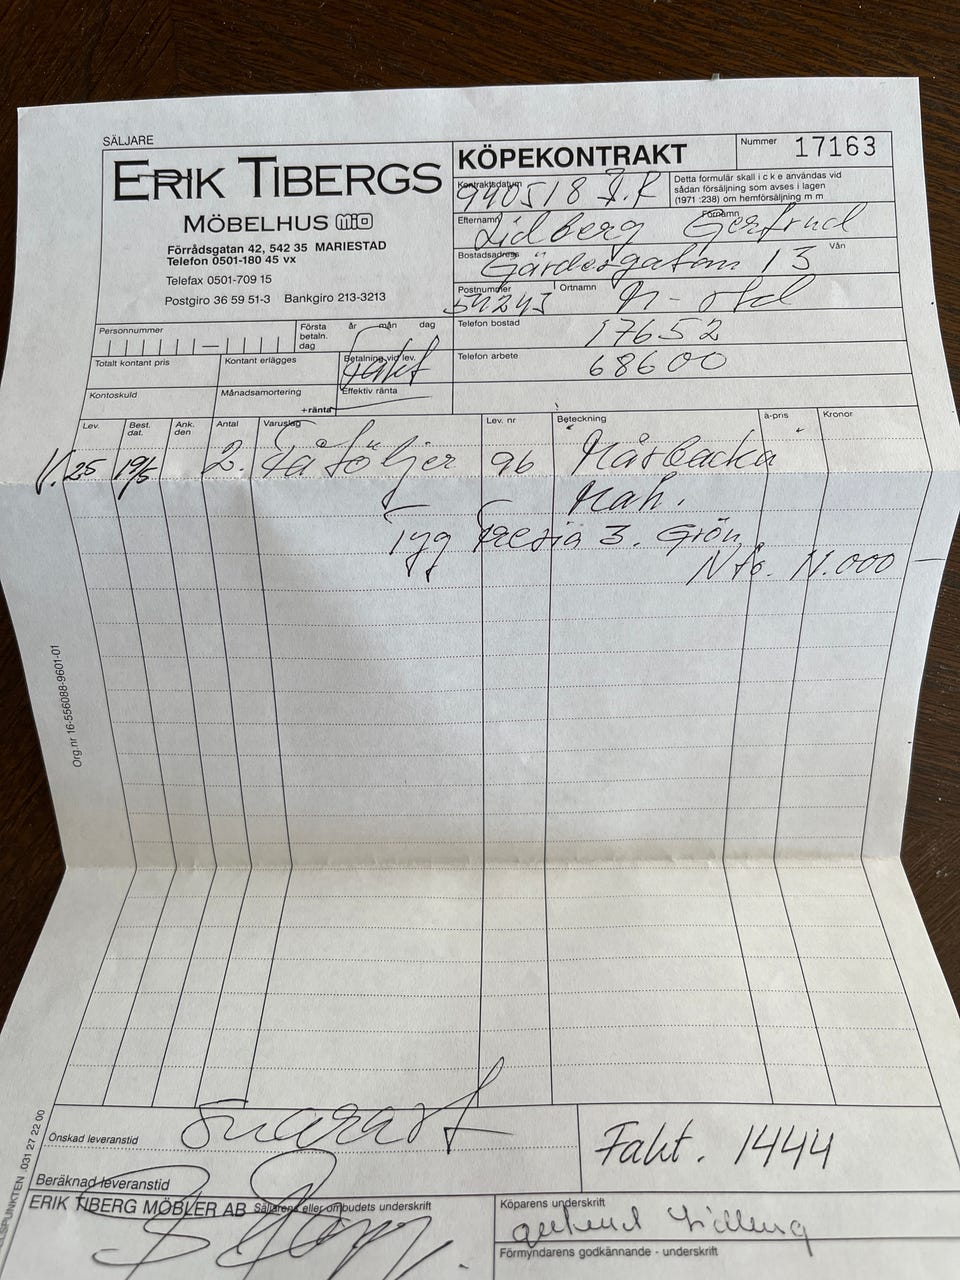 SÄLJARE
ERIK TIBERGS
MÖBELHUS MIO
Förrådsgatan 42, 542 35 MARIESTAD
Telefon 0501-180 45 vx
Telefax 0501-709 15
Postgiro 36 59 51-3 Bankgiro 213-3213
KÖPEKONTRAKT
Nummer 17163
Kontraktsdatum 940518 I.R
Detta formulär skall i c k e användas vid
sådan försäljning som avses i lagen
(1971 :238) om hemförsäljning m m
Efternamn Lidberg Förnamn Gertrud
Bostadsadress Gärdesgatan 13 Vån
Postnummer 54245 Ortnamn M-stad
Telefon bostad 17652
Telefon arbete 68600
Personnummer
Första betaln. dag år mån dag
Totalt kontant pris Kontant erlägges Betalning vid lev. Fakt
Kontoskuld Månadsamortering +ränta Effektiv ränta
Lev. Best. dat. Ank. den Antal Varuslag Lev. nr Beteckning à-pris Kronor
V.25 19/5 2. Fåtöljer 96 Mårbacka
Mah.
Tyg Fresia 3. Grön
Nto. 11.000 —
Org.nr 16-556088-9601-01
031 27 22 00
Önskad leveranstid Snarast
Fakt. 1444
Beräknad leveranstid
ERIK TIBERG MÖBLER AB Säljarens eller ombudets underskrift
Köparens underskrift
Gertrud Lidberg
Förmyndarens godkännande - underskrift